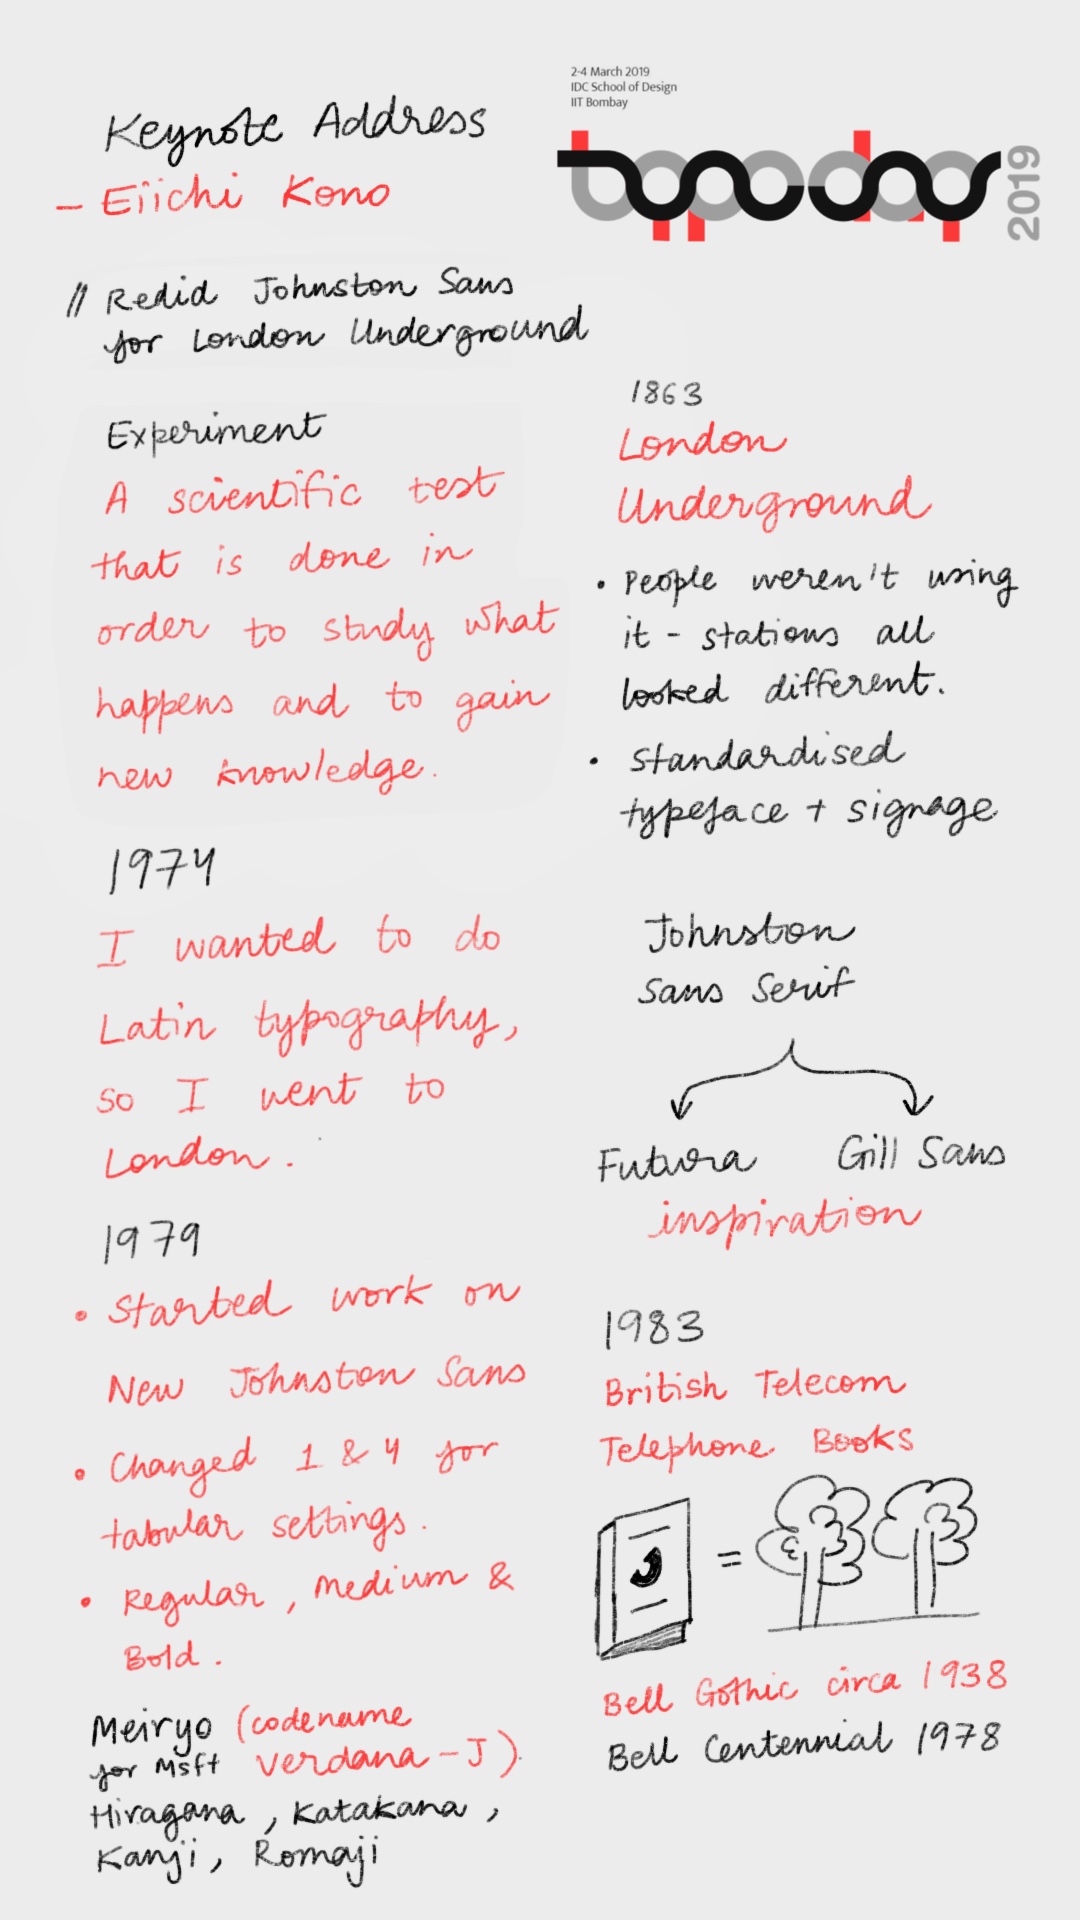 2-4 March 2019
IDC School of Design
IIT Bombay
typoday
2019
Keynote Address
- Eiichi Kono
// Redid Johnston Sans
for London Underground
Experiment
A scientific test
that is done in
order to study what
happens and to gain
new knowledge.
1974
I wanted to do
Latin typography,
so I went to
London.
1979
• Started work on
New Johnston Sans
• Changed 1 & 4 for
tabular settings.
• Regular, Medium &
Bold.
Meiryo (codename
for Msft Verdana-J)
Hiragana, Katakana,
Kanji, Romaji
1863
London
Underground
• People weren't using
it - stations all
looked different.
• Standardised
typeface + signage
Johnston
Sans Serif
Futura Gill Sans
inspiration
1983
British Telecom
Telephone Books
=
Bell Gothic circa 1938
Bell Centennial 1978